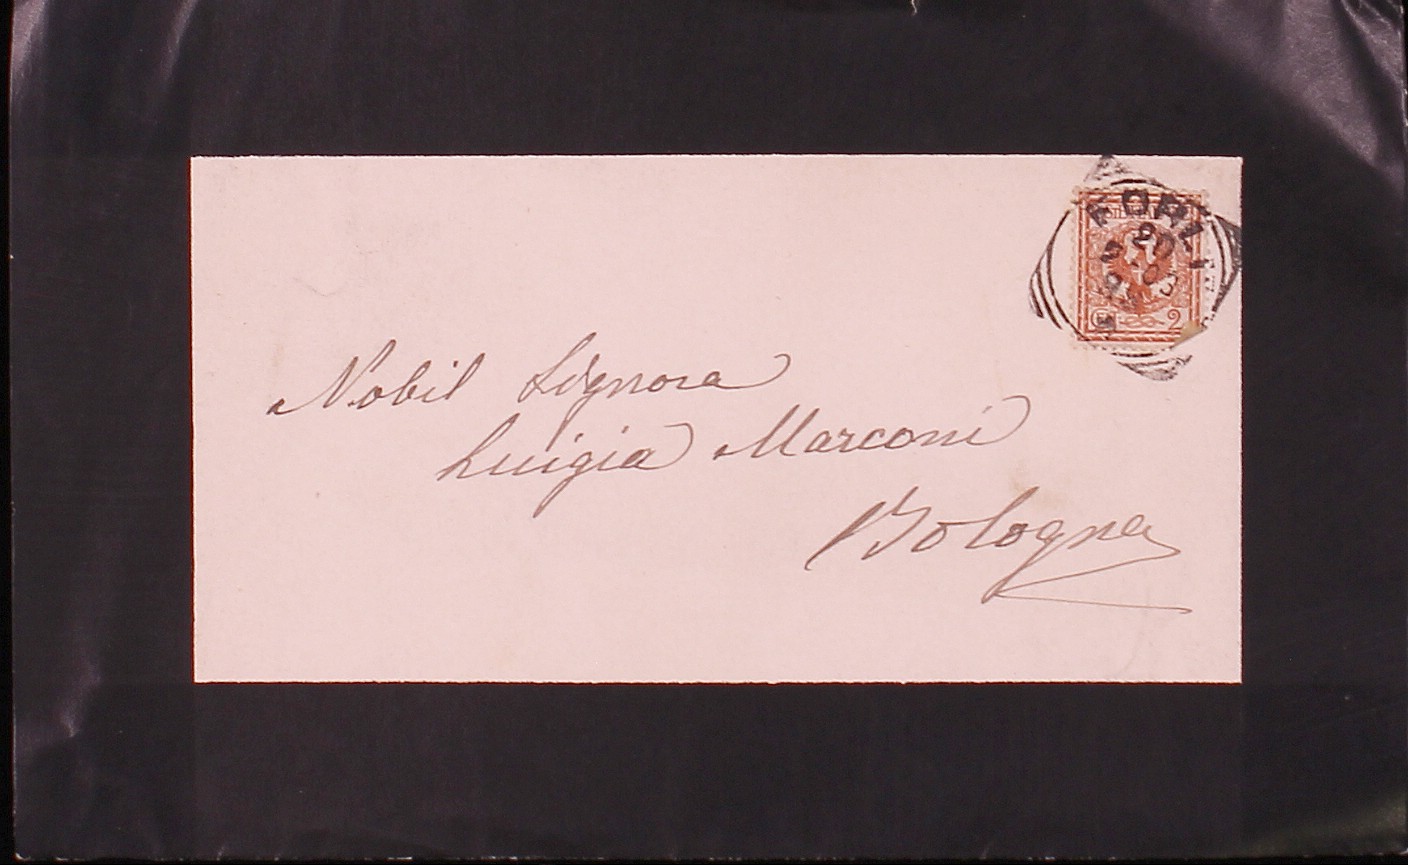 FORLI
20
C 2
Nobil Signora
Luigia Marconi
Bologna